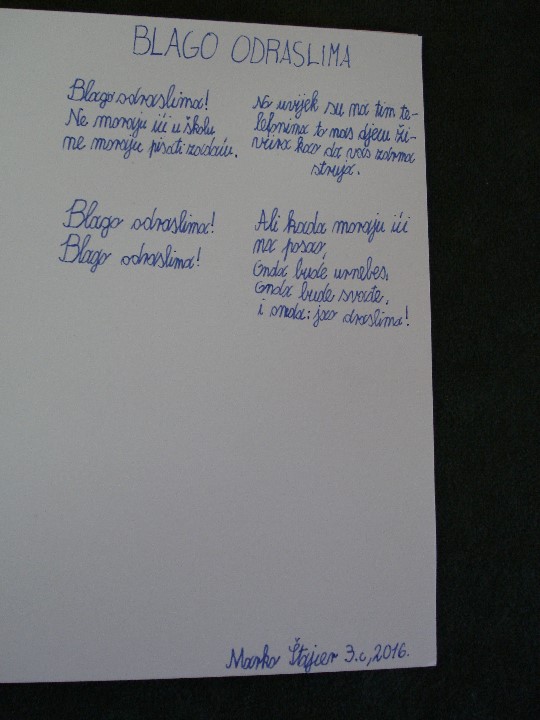 BLAGO ODRASLIMA
Blago odraslima!
Ne moraju ići u školu
ne moraju pisati zadaću.
Blago odraslima!
Blago odraslima!
No uvijek su na tim te-
lefonima to nas djecu ži-
vcira kao da vas zdrma
struja.
Ali kada moraju ići
na posao,
Onda bude urnebes,
Onda bude svađe,
i onda: jao draslima!
Marko Štajcer 3.c, 2016.